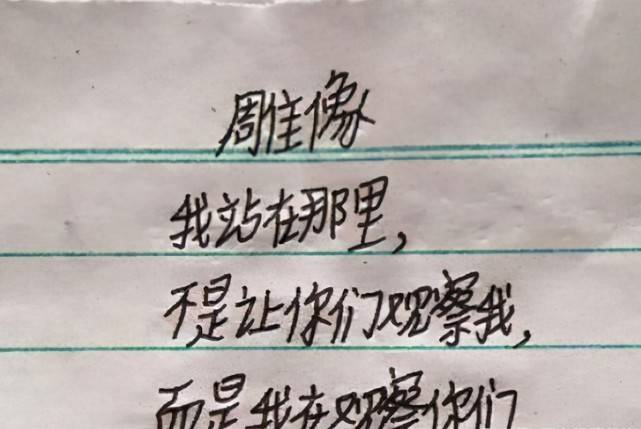 雕像
我站在那里,
不是让你们观察我,
而是我在观察你们